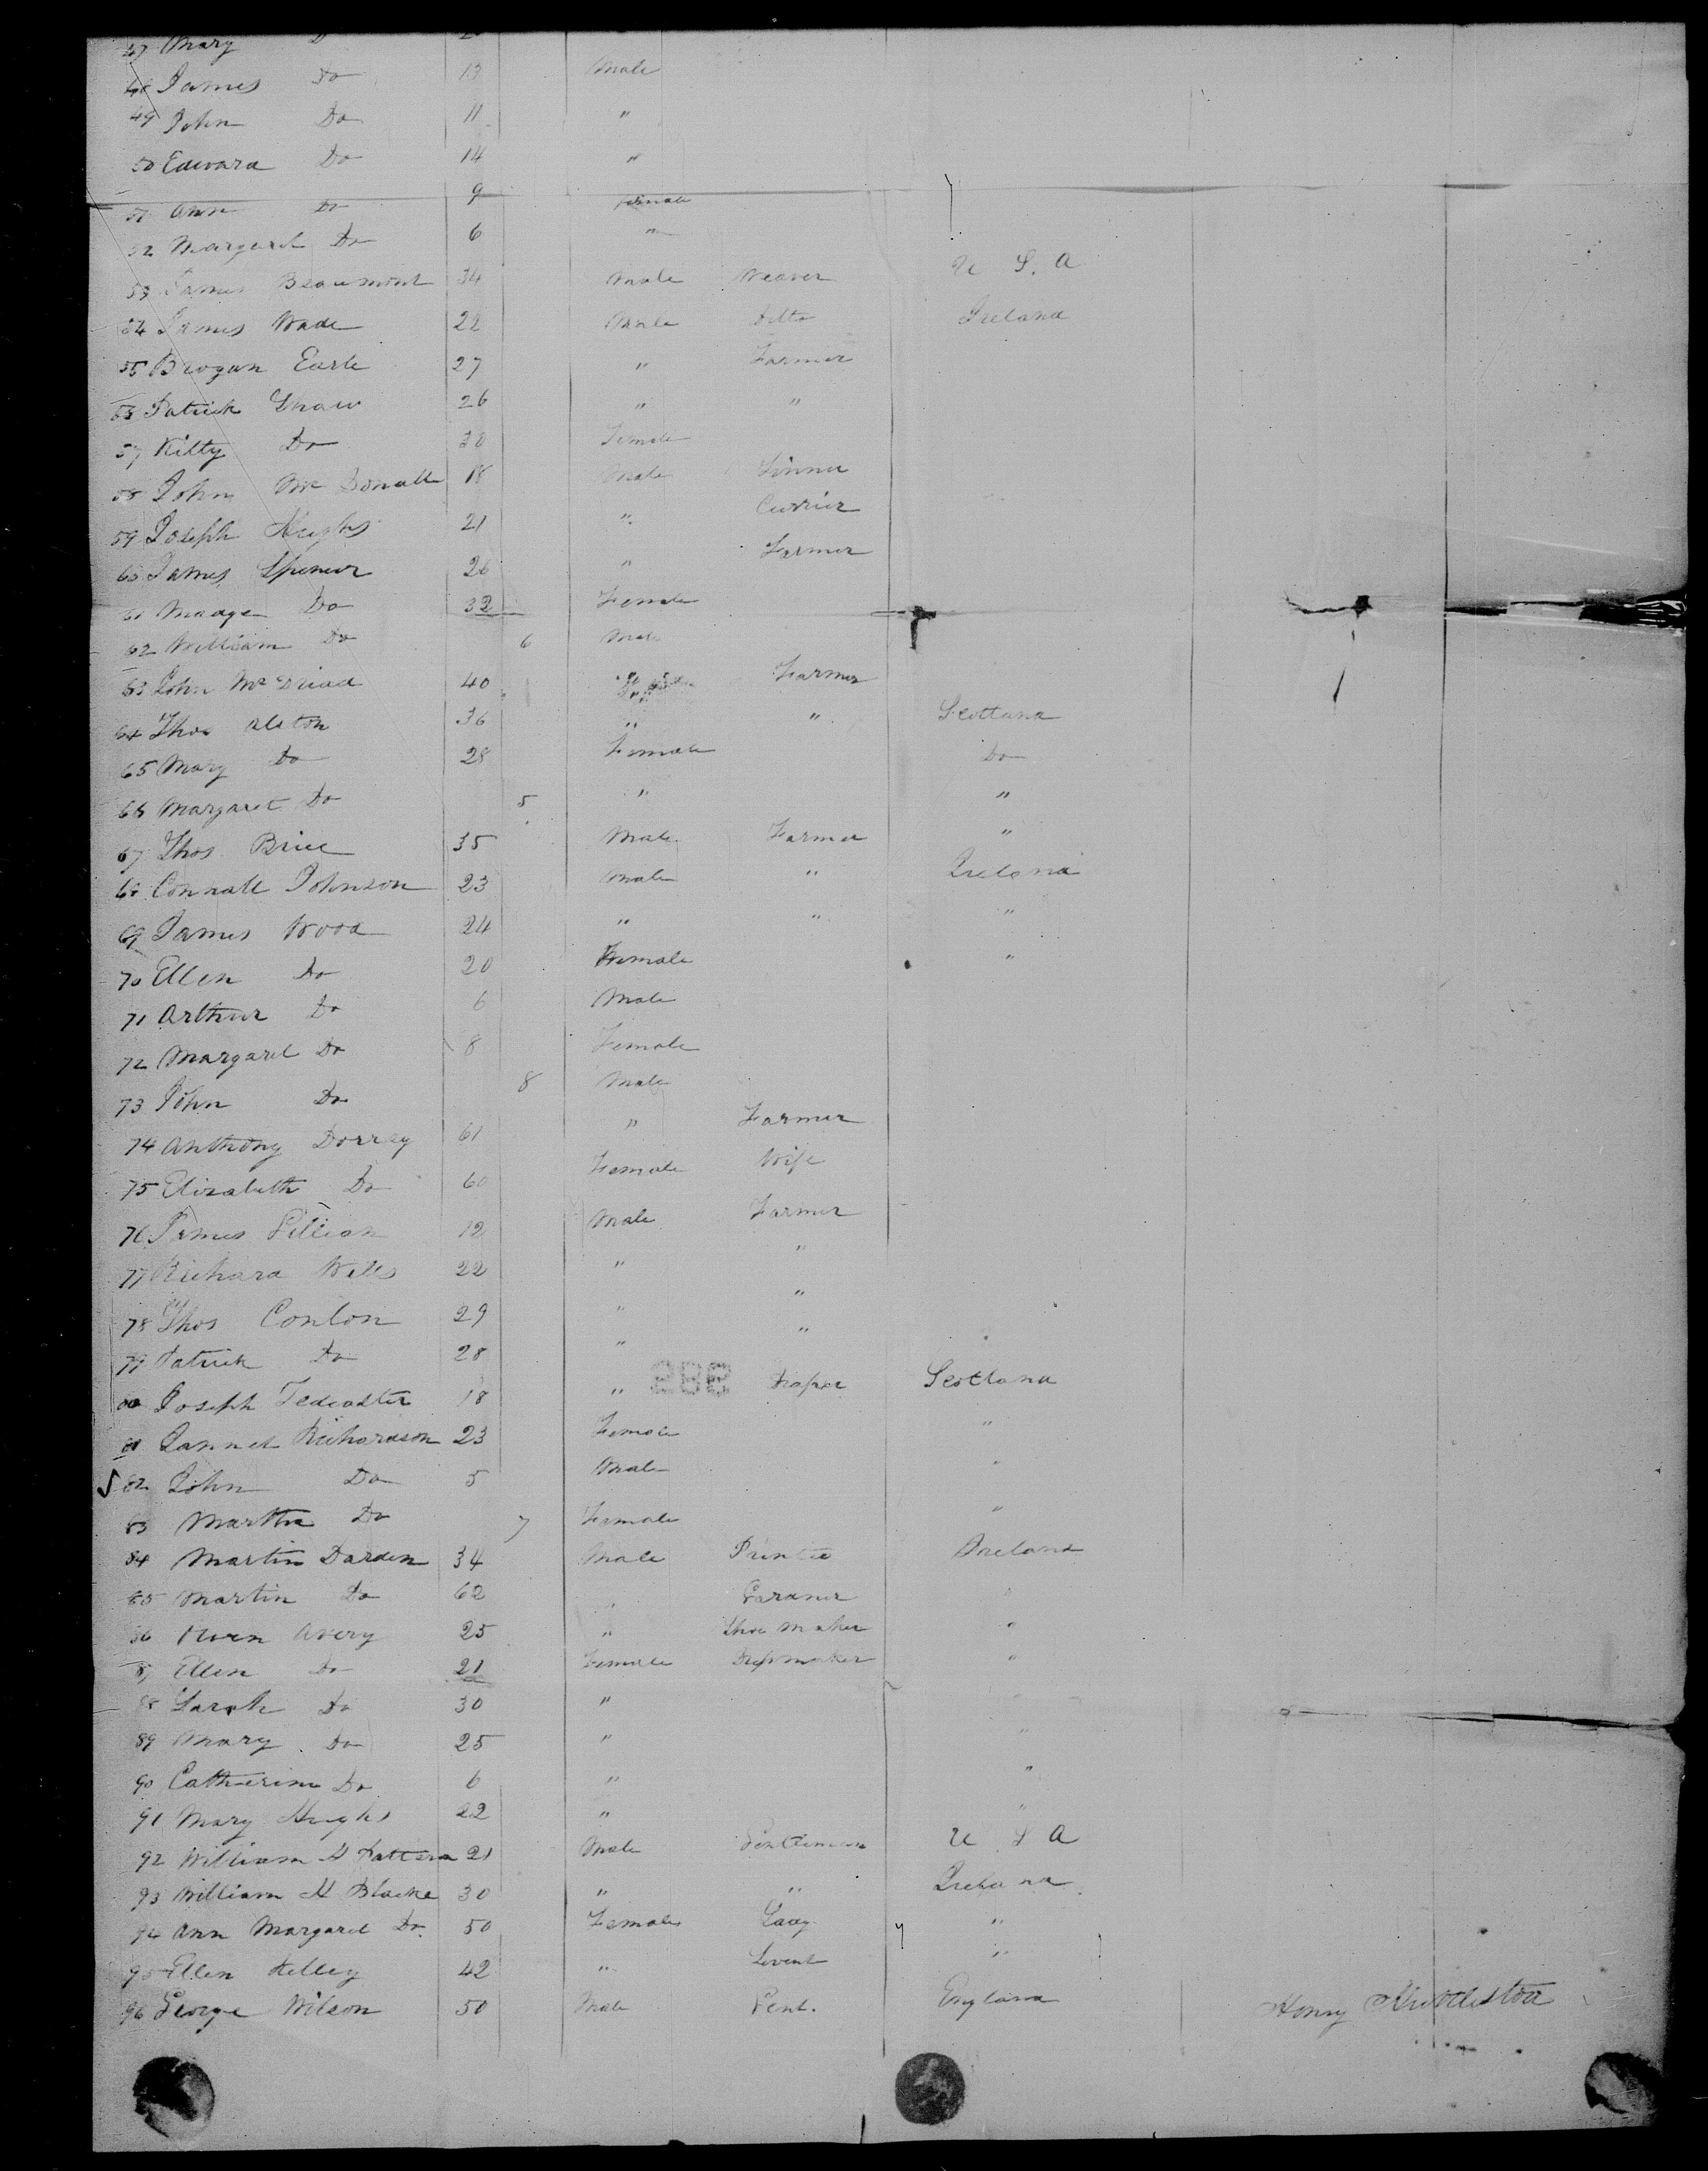 47 Mary D
48 James Do 13 Male
49 John Do 11 "
50 Edward Do 14 "
51 Ann Do 9 female
52 Margaret Do 6 "
53 James Beaumont 34 Male Weaver U S. A
54 James Wade 22 Male Ditto Ireland
55 Brogan Earle 27 " Farmer
56 Patrick Shaw 26 " "
57 Kitty Do 30 Female
58 John Mc Donall 18 Male
59 Joseph Hughs 21 " Currier
60 James Spencer 26 " Farmer
61 Madge Do 32 Female
62 William Do 6 Male
63 John Mc 40 Farmer
64 Thos Alston 36 " " Scotland
65 Mary Do 28 Female Do
66 Margaret Do 5 " "
67 Thos Brice 35 Male Farmer "
68 Connall Johnson 23 Male " Ireland
69 James Wood 24 " " "
70 Ellen Do 20 Female "
71 Arthur Do 6 Male
72 Margaret Do 8 Female
73 John Do 8 Male
74 Anthony Dorray 61 " Farmer
75 Elizabeth Do 60 Female Wife
76 James Gillian 12 Male Farmer
77 Richard Wells 22 " "
78 Thos Conlon 29 " "
79 Patrick Do 28 " "
80 Joseph Tedcaster 18 " Draper Scotland
81 Jannet Richardson 23 Female "
82 John Do 5 Male "
83 Martha Do 7 Female "
84 Martin Darden 34 Male Printer Ireland
85 Martin Do 62 " Gardner "
86 Avery 25 " Shoe Maker "
87 Ellen Do 21 Female Dressmaker "
88 Sarah Do 30 " "
89 Mary Do 25 " "
90 Catherine Do 6 " "
91 Mary Hughs 22 " "
92 William 21 Male Gentleman U S A
93 William H Blacke 30 " " Ireland
94 Ann Margaret Do 50 Female Lady "
95 Ellen Kelley 42 " Servent "
96 George Wilson 50 Male Gent. England Henry Huddleston